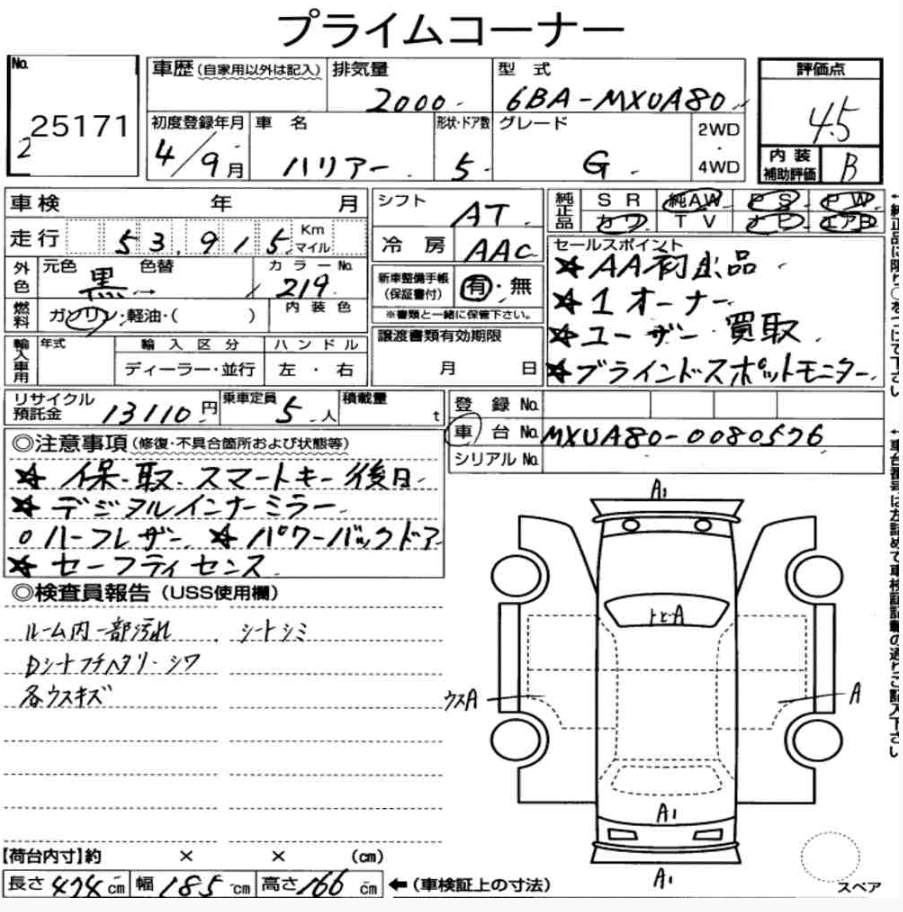 プライムコーナー
No.
2 25171
車歴 (自家用以外は記入) 排気量 型式 評価点
2000. 6BA-MXUA80 4.5
初度登録年月 車名 形状・ドア数 グレード 2WD・4WD 内装補助評価
4/9月 ハリアー 5 G B
車検 年 月 シフト AT 純正品 SR 純AW PS PW
走行 53,915 Km マイル 冷房 AAC カワ TV ナビ エアB
外色 元色 黒 色替 → カラーNo. 219 新車整備手帳(保証書付) 有・無
※書類と一緒に保管下さい。
燃料 ガソリン・軽油・( ) 内装色 譲渡書類有効期限
月 日
輸入車用 年式 輸入区分 ハンドル
ディーラー・並行 左・右
セールスポイント
★AA初出品
★1オーナー
★ユーザー買取
★ブラインドスポットモニター
リサイクル預託金 13110円 乗車定員 5人 積載量 t 登録No.
車台No. MXUA80-0080576
シリアルNo.
◎注意事項(修復・不具合箇所および状態等)
★保・取・スマートキー後日
★デジタルインナーミラー
○ハーフレザー ★パワーバックドア
★セーフティセンス
◎検査員報告(USS使用欄)
ルーム内一部汚れ、シートシミ
Dシートフチヘタリ・シワ
各ウスキズ
A1
トビA
ウスA
A
A1
A1
スペア
【荷台内寸】約 × × (cm)
長さ 474cm 幅 185cm 高さ 166cm ←(車検証上の寸法)